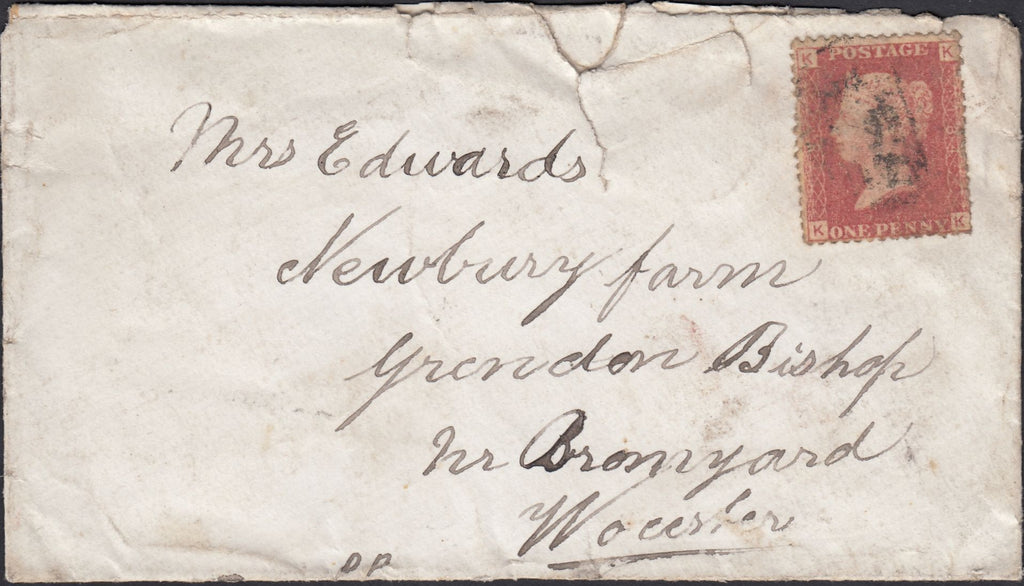 K POSTAGE K
Mrs Edwards
K ONE PENNY K
Newbury farm
Grendon Bishop
Nr Bromyard
Wocester